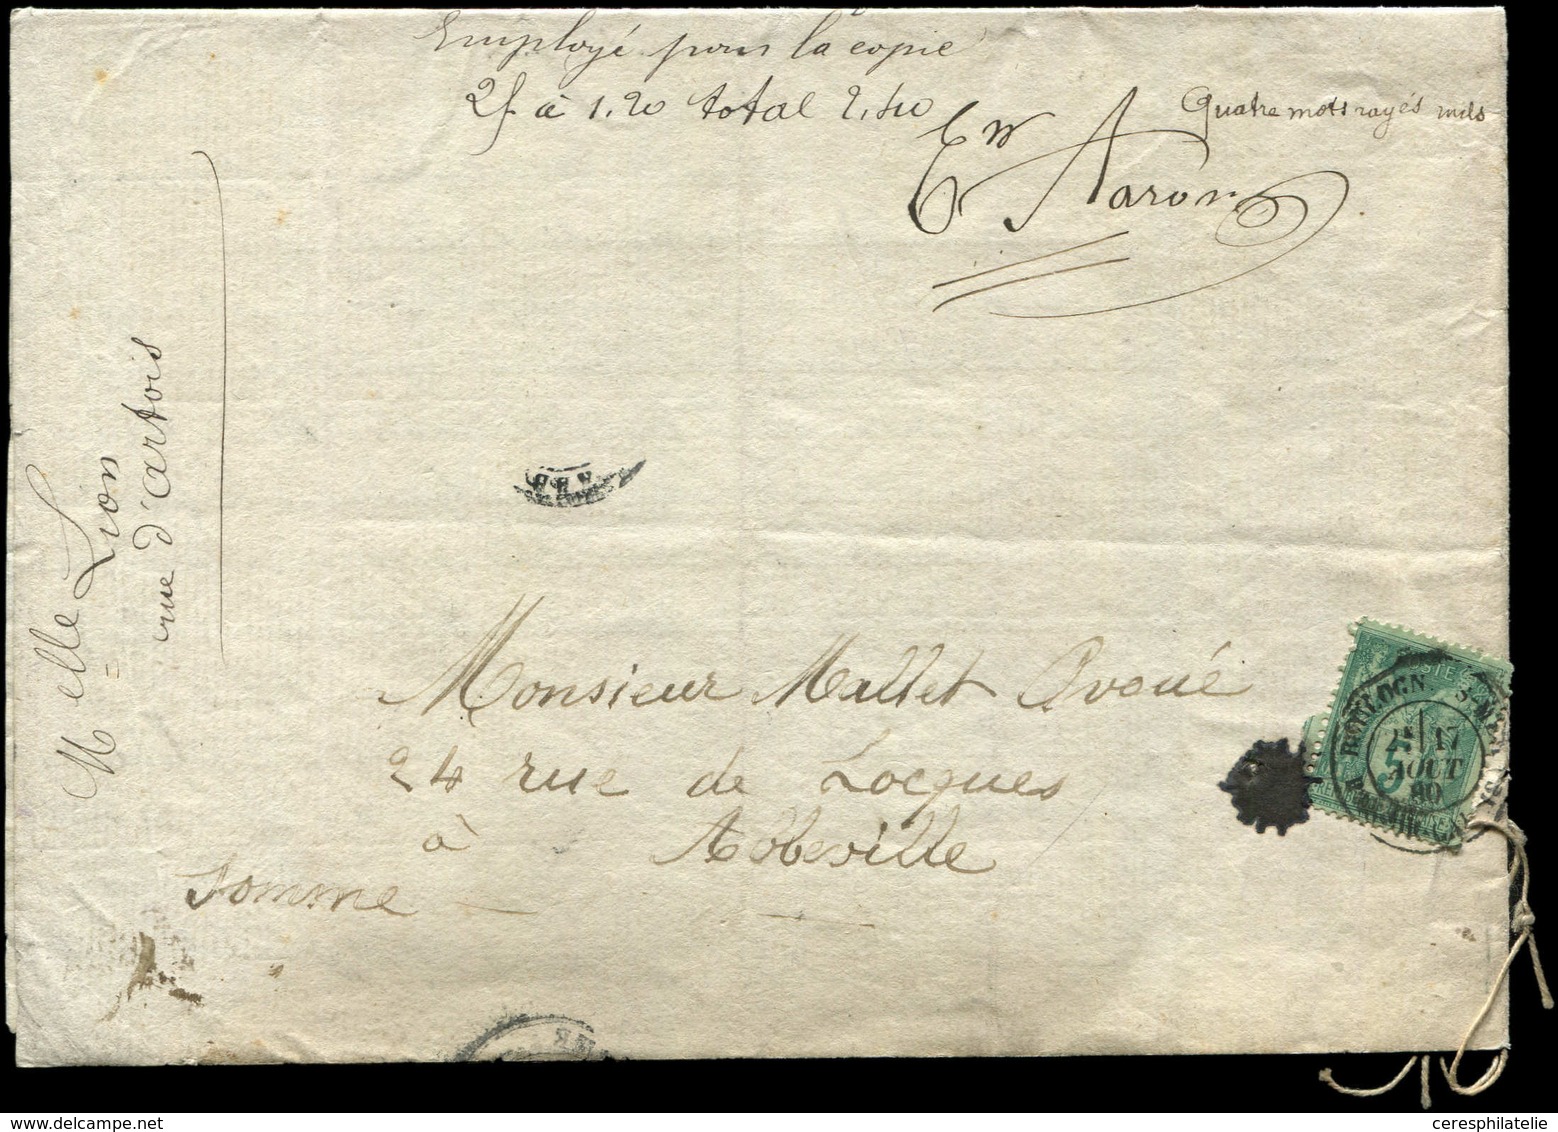 Employé pour la copie
2f à 1.20 total 2,40
Quatre mots rayés nuls
Em Aaron
M elle Lion
rue d'artois
Monsieur Mallet Avoué
24 rue de Locques
à Abbeville
Somme
POSTE
BOULOGNE S-MER
2E 17
AOUT
80
5
ceresphilatelie